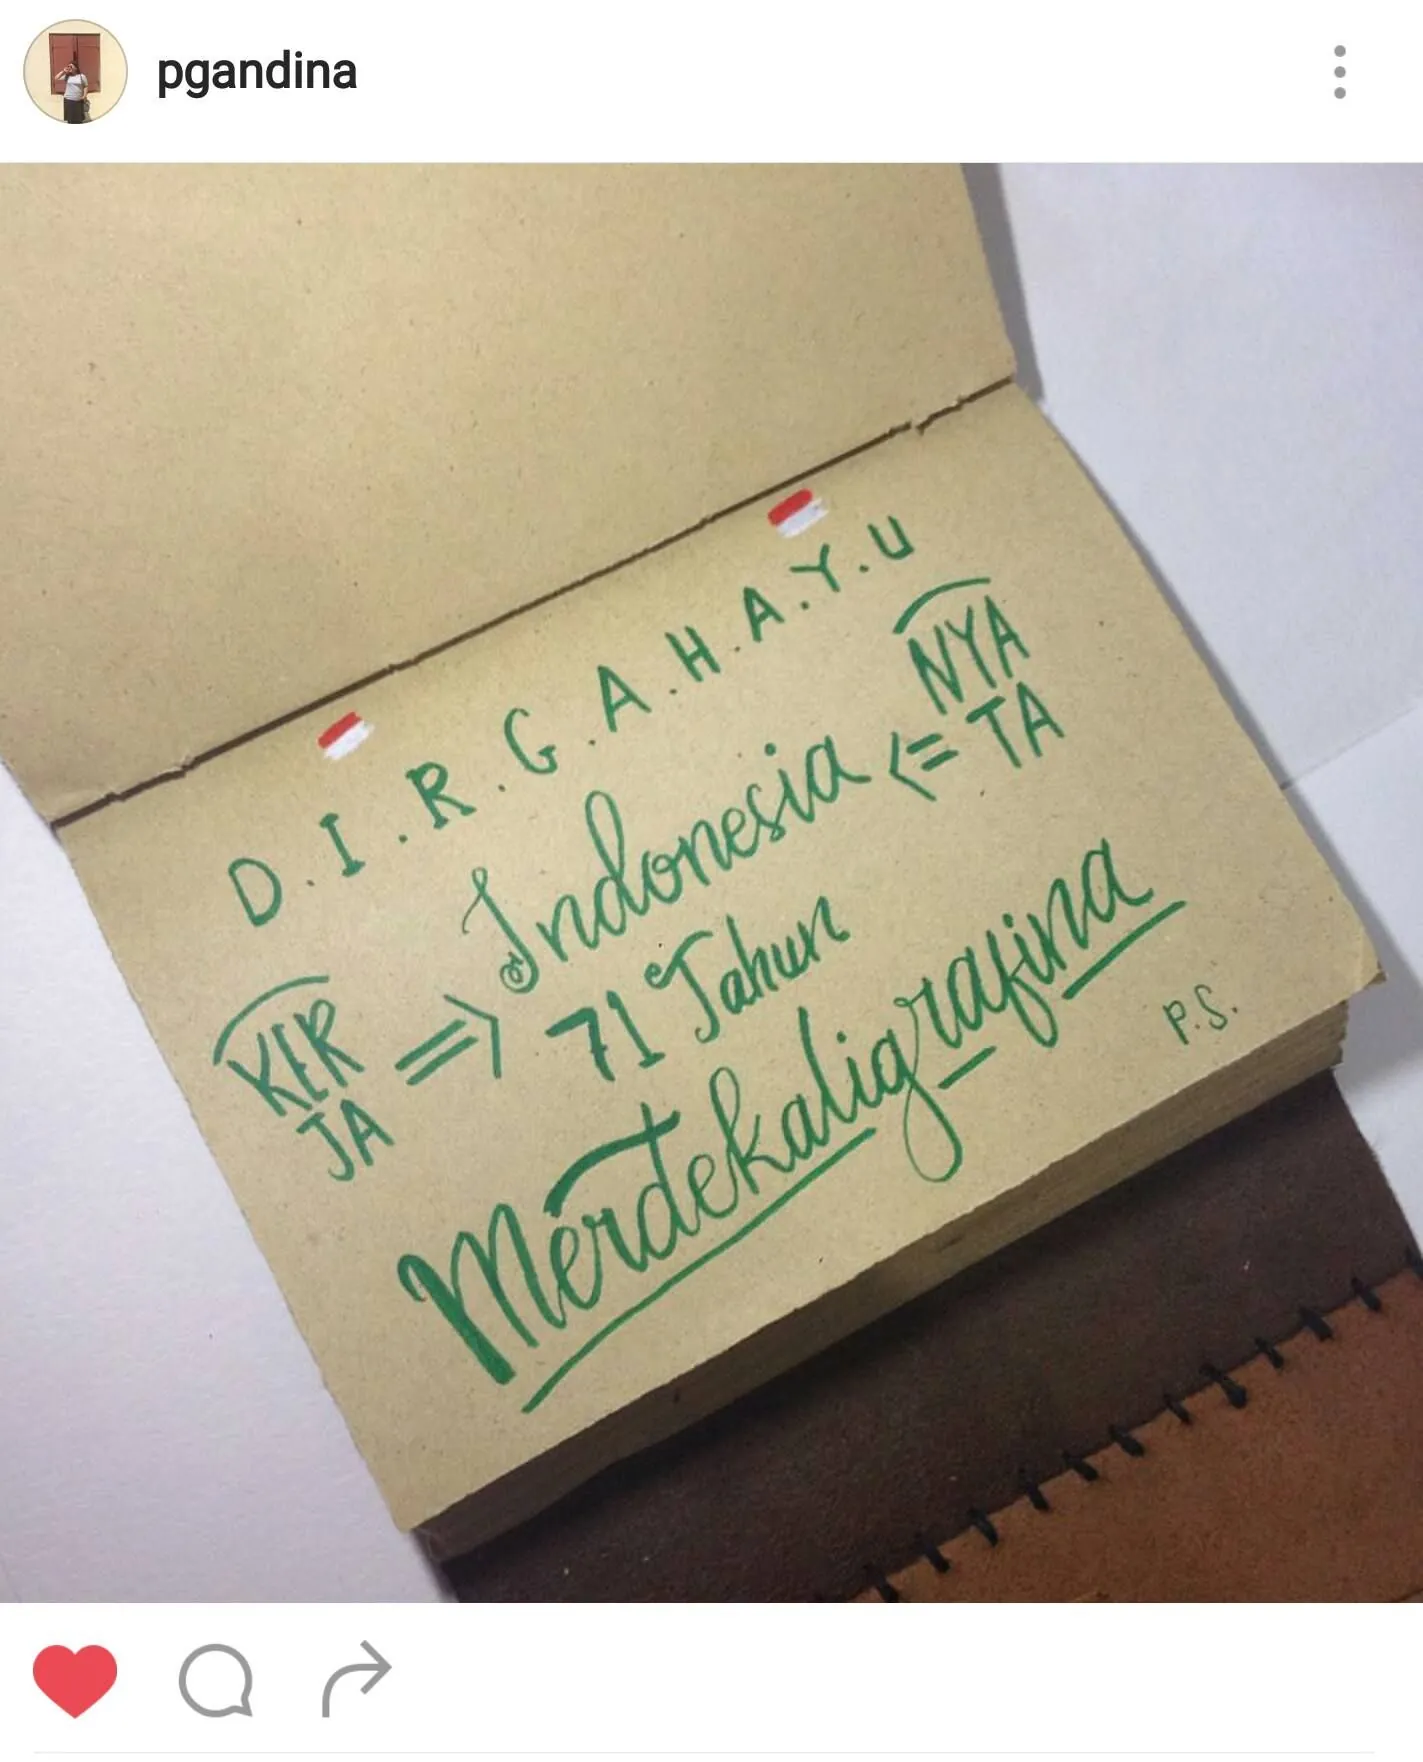 pgandina
D.I.R.G.A.H.A.Y.U
NYA
TA
Indonesia <=
KER
JA
=> 71 Tahun
Merdekaligrafina
P.S.